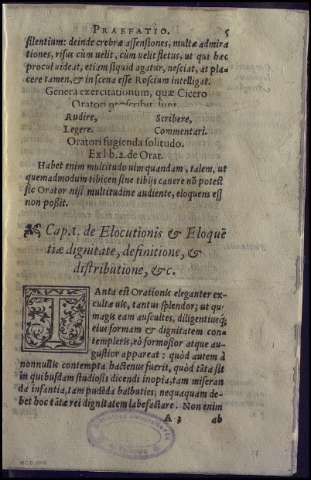 PRAEFATIO. 5
silentium: deinde crebræ assensiones, multæ admira
tiones, risus cùm uelit, cùm uelit fletus, ut qui hæc
procul uideat, etiam si quid agatur, nesciat, at pla-
cere tamen, & in scena esse Roscium intelligat.
Genera exercitationum, quæ Cicero
Oratori præscribit sunt
Audire, Scribere,
Legere. Commentari.
Oratori fugienda solitudo.
Ex lib. 2. de Orat.
Habet enim multitudo uim quandam, talem, ut
quemadmodum tibicen sine tibijs canere nō potest
sic Orator nisi multitudine audiente, eloquens esse
non possit.
Cap. 1. de Elocutionis & Eloquē
tiæ dignitate, definitione, &
distributione, &c.
TAnta est Orationis eleganter ex-
cultæ uis, tantus splendor; ut quò
magis eam auscultes, diligentiusq́;
eius formam & dignitatem con-
templeris, eò formosior atque au-
gustior appareat: quòd autem à
nonnullis contempta hactenus fuerit, quòd tāta sit
in quibusdam studiosis dicendi inopia, tam miseran
da infantia, tam pudēda balbuties; nequaquam de-
bet hoc tātæ rei dignitatem labefactare. Non enim
A 3 ab